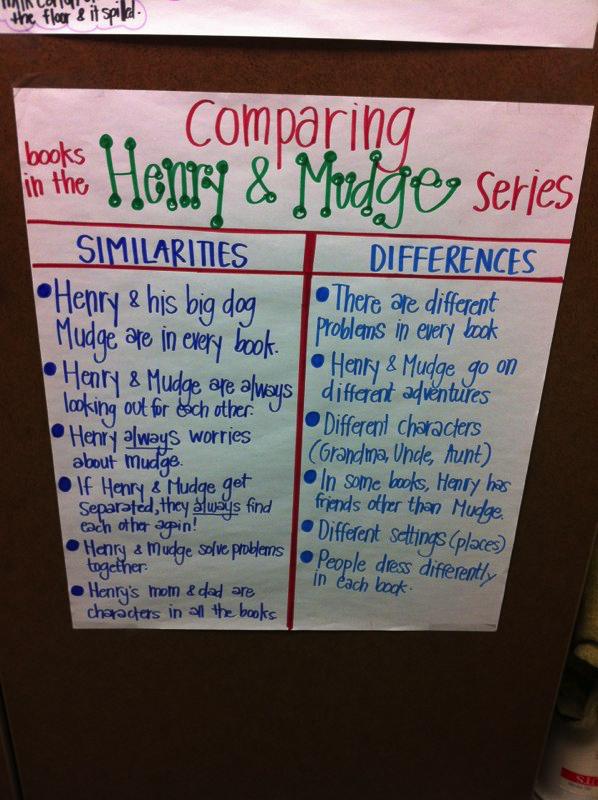 the floor & it spilled.
Comparing
books
in the Henry & Mudge series
SIMILARITIES
• Henry & his big dog
Mudge are in every book.
• Henry & Mudge are always
looking out for each other.
• Henry always worries
about mudge.
• If Henry & Mudge get
separated, they always find
each other again!
• Henry & Mudge solve problems
together.
• Henry's mom & dad are
characters in all the books
DIFFERENCES
• There are different
problems in every book
• Henry & Mudge go on
different adventures
• Different characters
(Grandma, Uncle, Aunt)
• In some books, Henry has
friends other than Mudge.
• Different settings (places)
• People dress differently
in each book.